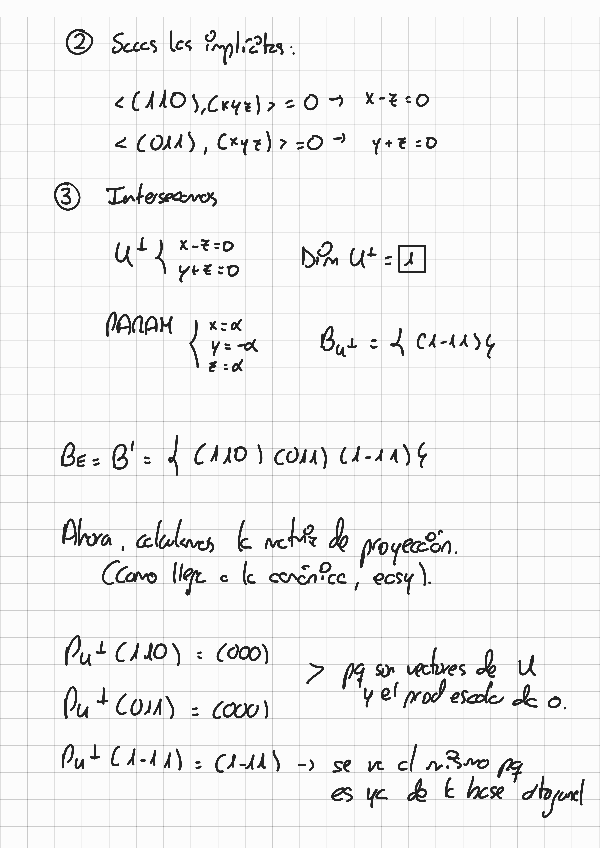 ② Sacas las implícitas:
<(110),(xyz)> = 0 → x-z=0
<(011),(xyz)> =0 → y+z=0
③ Intersecamos
U⊥ { x-z=0
y+z=0
Dim U⊥ = 1
PARAM { x=α
y=-α
z=α
B_U⊥ = { (1-11) }
B_E = B' = { (110) (011) (1-11) }
Ahora, calculamos la matriz de proyección.
(Como llega a la canónica, easy).
P_U⊥ (110) = (000)
P_U⊥ (011) = (000)
> pq son vectores de U
y el prod escalar da 0.
P_U⊥ (1-11) = (1-11) → se va al mismo pq
es ya de la base ortogonal